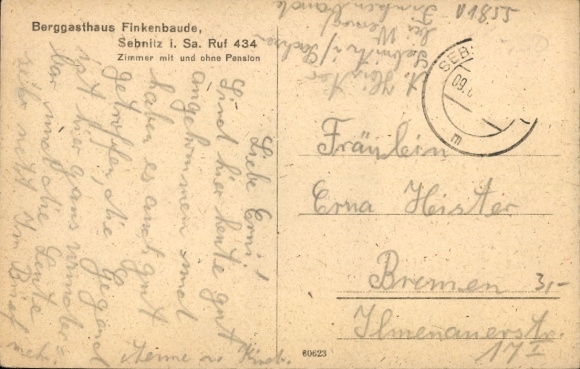 Berggasthaus Finkenbaude,
Sebnitz i. Sa. Ruf 434
Zimmer mit und ohne Pension
Liebe Erni!
Sind hier heute gut
angekommen und
haben es auch gut
getroffen, die Gegend
ist hier ganz wunder-
bar und die Leute
sehr nett. Im Brief
mehr.
01855
Sebnitz i/Sachsen
SEB
09.
m
Fräulein
Erna Heister
Bremen
3,-
Ilmenauerstr.
17 I
60623